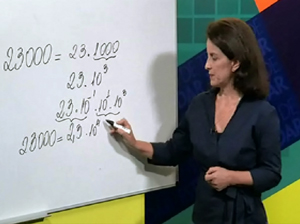 23000 = 23.1000
23.10³
23.10⁻¹.10¹.10³
23000 = 2,3.10